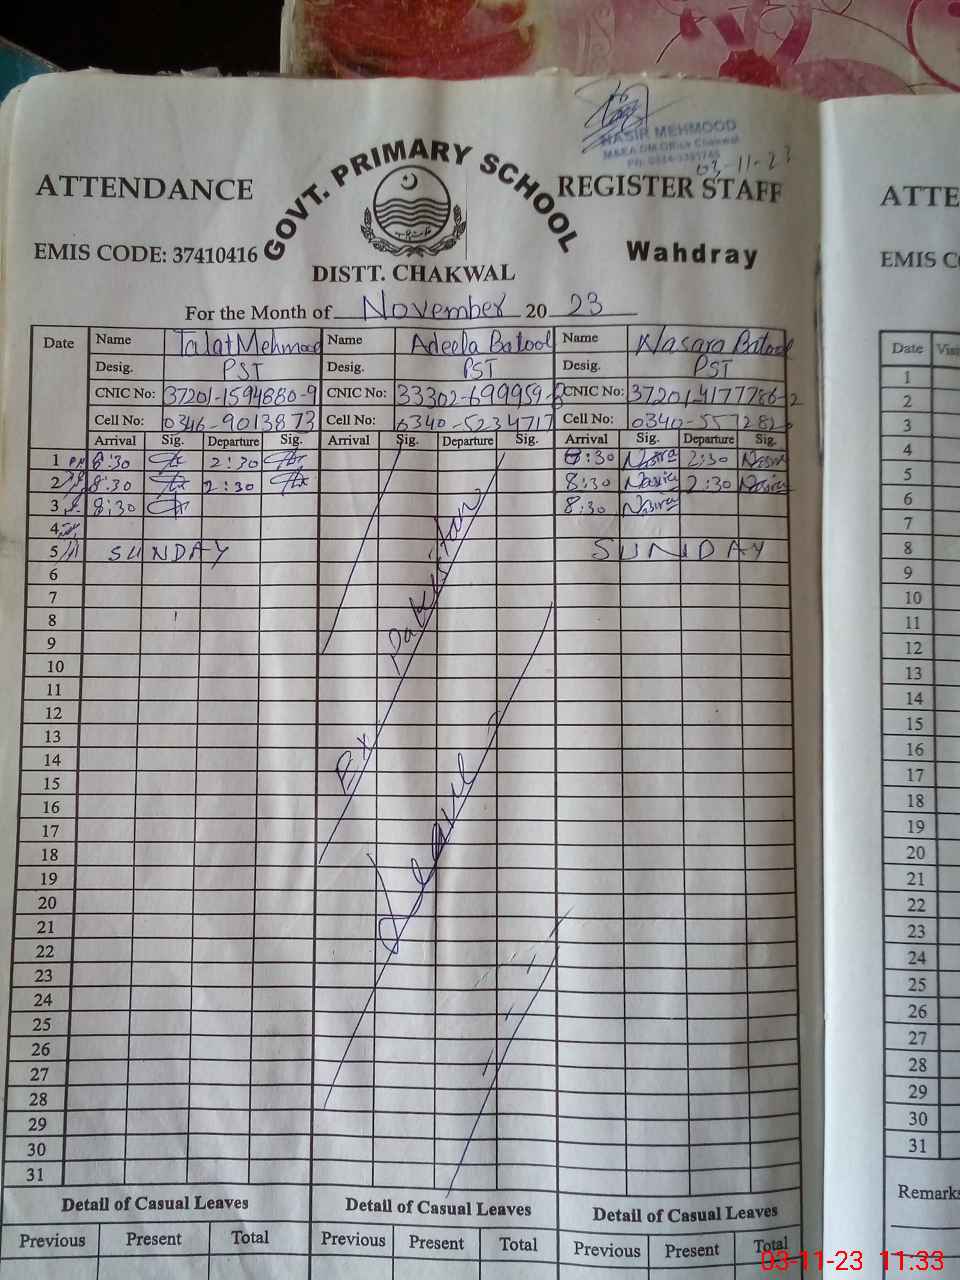 NASIR MEHMOOD
03-11-23
ATTENDANCE GOVT. PRIMARY SCHOOL REGISTER STAFF
EMIS CODE: 37410416 Wahdray
DISTT. CHAKWAL
For the Month of November 20 23
Date Name Talat Mehmood Name Adeela Batool Name Nasara Batool
Desig. PST Desig. PST Desig. PST
CNIC No: 37201-1594880-9 CNIC No: 33302-699959- CNIC No: 37201-4177786-2
Cell No: 0346-9013873 Cell No: 0340-5234717 Cell No: 0340-557282
Arrival Sig. Departure Sig. Arrival Sig. Departure Sig. Arrival Sig. Departure Sig.
1 8:30 2:30 8:30 Nasira 2:30 Nasira
2 8:30 2:30 8:30 Nasira 2:30 Nasira
3 8:30 8:30 Nasira
4
5 SUNDAY SUNDAY
6
7
8
9
10
11
12
13
14
15
16
17
18
19
20
21
22
23
24
25
26
27
28
29
30
31
Ex Pakistan
Leave
Detail of Casual Leaves Detail of Casual Leaves Detail of Casual Leaves
Previous Present Total Previous Present Total Previous Present Total
ATTE
EMIS C
Date
1
2
3
4
5
6
7
8
9
10
11
12
13
14
15
16
17
18
19
20
21
22
23
24
25
26
27
28
29
30
31
Remarks
03-11-23 11:33